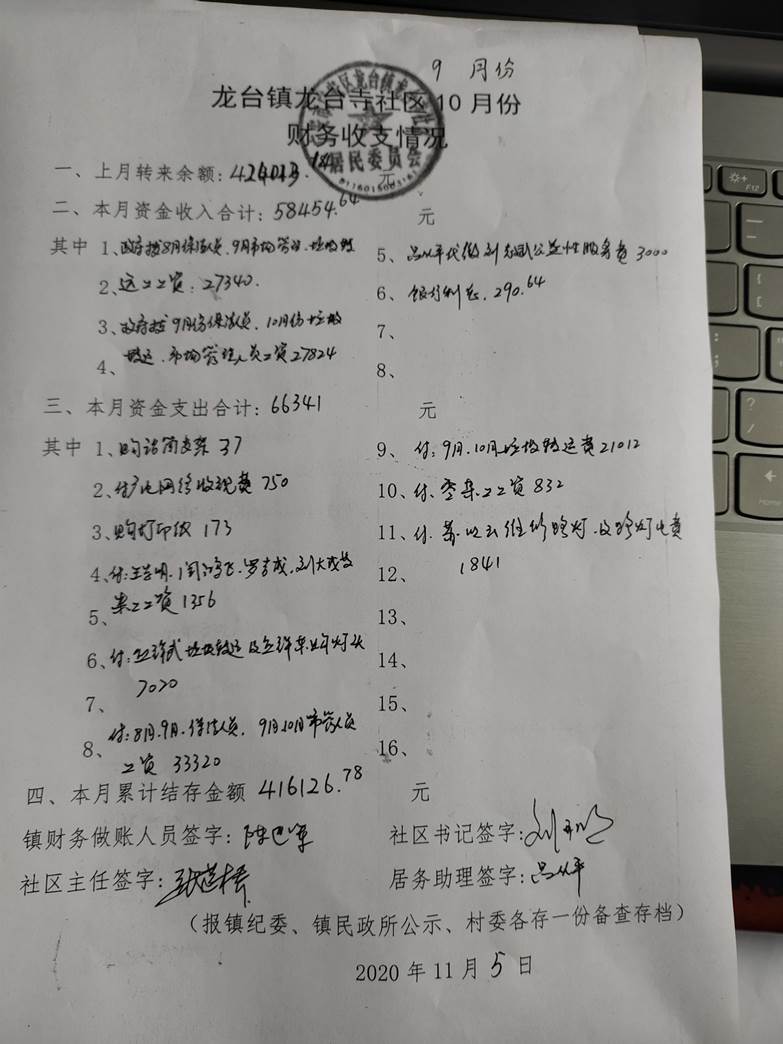 9 月份
龙台镇龙台寺社区 10 月份
财务收支情况
居民委员会
一、上月转来余额: 424013.14 元
二、本月资金收入合计: 58454.64 元
其中 1、政府拨8月保洁员、9月市场管理、垃圾转
2、运工工资: 27340.
3、政府拨9月份保洁员、10月份垃圾
4、转运、市场管理人员工资27824
5、吕从平代缴 公益性服务费 3000
6、银行利息. 290.64
7、
8、
三、本月资金支出合计: 66341 元
其中 1、购 37
2、付广电网络收视费 750
3、购打印纸 173
4、付:
5、 工资 1356
6、付: 垃圾转运及 路灯
7、 7020
8、付: 8月、9月、保洁员、9月、10月市管人员
工资 33320
9、付: 9月、10月垃圾转运费 21012
10、付、 工资 832
11、付、 维修路灯、及路灯电费
12、 1841
13、
14、
15、
16、
四、本月累计结存金额 416126.78 元
镇财务做账人员签字:
社区书记签字:
社区主任签字:
居务助理签字: 吕从平
（报镇纪委、镇民政所公示、村委各存一份备查存档）
2020 年 11 月 5 日